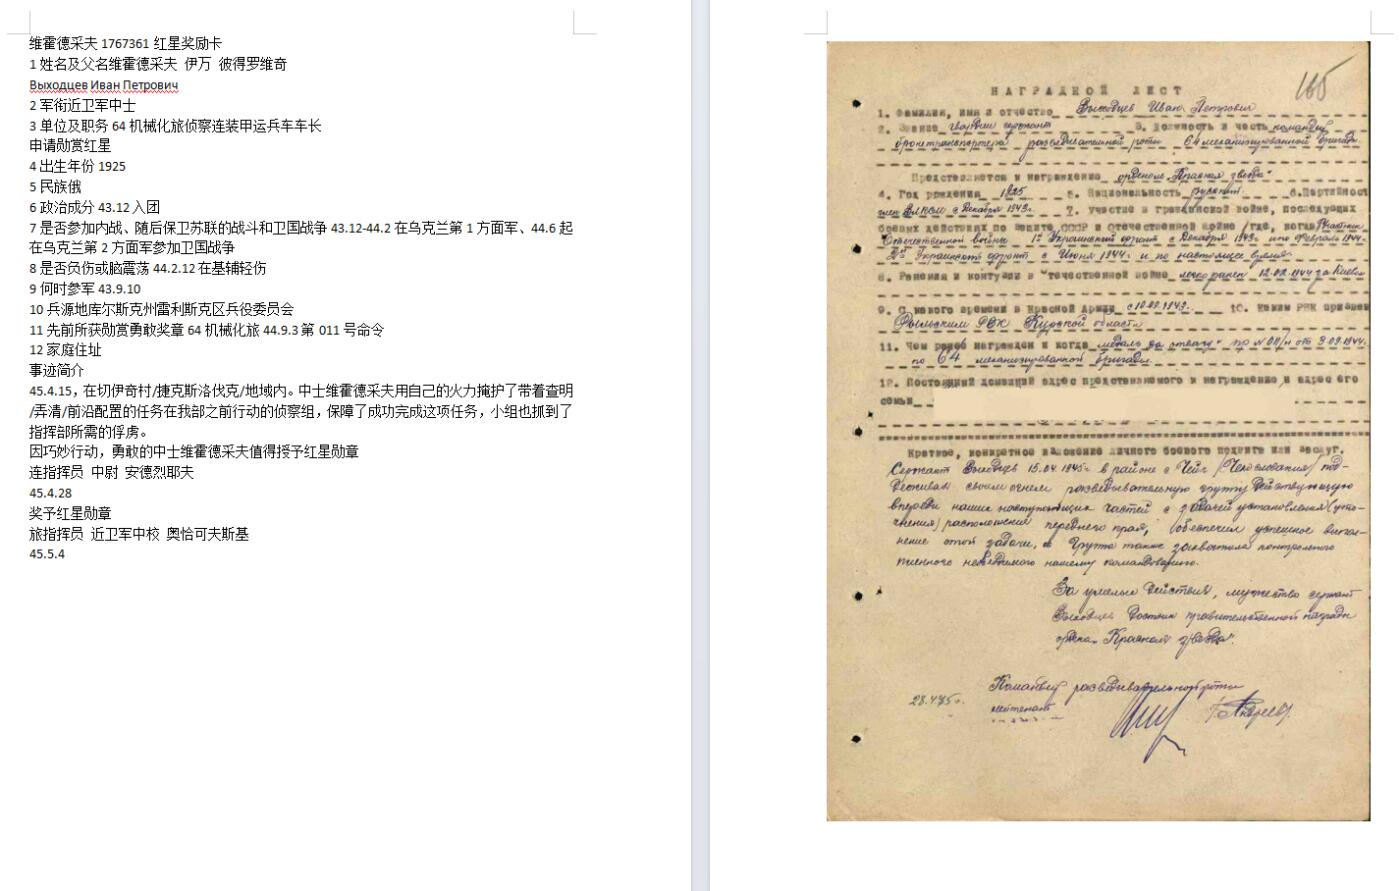 维霍德采夫 1767361 红星奖励卡
1 姓名及父名维霍德采夫 伊万 彼得罗维奇
Выходцев Иван Петрович
2 军衔近卫军中士
3 单位及职务 64 机械化旅侦察连装甲运兵车车长
申请勋赏红星
4 出生年份 1925
5 民族俄
6 政治成分 43.12 入团
7 是否参加内战、随后保卫苏联的战斗和卫国战争 43.12-44.2 在乌克兰第 1 方面军、44.6 起
在乌克兰第 2 方面军参加卫国战争
8 是否负伤或脑震荡 44.2.12 在基辅轻伤
9 何时参军 43.9.10
10 兵源地库尔斯克州雷利斯克区兵役委员会
11 先前所获勋赏勇敢奖章 64 机械化旅 44.9.3 第 011 号命令
12 家庭住址
事迹简介
45.4.15，在切伊奇村/捷克斯洛伐克/地域内。中士维霍德采夫用自己的火力掩护了带着查明
/弄清/前沿配置的任务在我部之前行动的侦察组，保障了成功完成这项任务，小组也抓到了
指挥部所需的俘虏。
因巧妙行动，勇敢的中士维霍德采夫值得授予红星勋章
连指挥员 中尉 安德烈耶夫
45.4.28
奖予红星勋章
旅指挥员 近卫军中校 奥恰可夫斯基
45.5.4
НАГРАДНОЙ ЛИСТ
1. Фамилия, имя и отчество Выходцев Иван Петрович
2. Звание гвардии сержант 3. Должность и часть командир
бронетранспортера разведывательной роты 64 механизированной бригады.
Представляется к награждению орденом „Красная звезда"
4. Год рождения 1925 5. Национальность русский 6. Партийност
член ВЛКСМ с Декабря 1943г. 7. Участие в гражданской войне, последующих
боевых действиях по защите СССР и Отечественной войне /где, когда/ Участник
Отечественной войны 1й Украинский фронт с Декабря 1943г. по Февраль 1944г.
2й Украинский фронт с Июня 1944г. и по настоящее время.
8. Ранения и контузии в Отечественной войне легко ранен 12.02.1944
9. С какого времени в Красной Армии с 10.09.1943г. 10. Каким РВК призван
Рыльским РВК Курской области
11. Чем ранее награжден и когда медаль „За отвагу" пр № 011/н от 3.09.1944г.
по 64 механизированной бригаде.
12. Постоянный домашний адрес представляемого к награждению и адрес его
семьи
Краткое, конкретное изложение личного боевого подвига или заслуг.
Сержант Выходцев 15.04.1945г. в районе с Чейч /Чехословакия/ под-
держивая своим огнем разведывательную группу действующую
впереди наших наступающих частей с задачей установления (уто-
чнения) расположения переднего края, обеспечил успешное выпол-
нение этой задачи, и группа также захватила контрольного
пленного необходимого нашему командованию.
За умелые действия, мужество сержант
Выходцев достоин правительственной награды
ордена „Красная звезда".
Командир разведывательной роты
28.4.45г. лейтенант Андреев